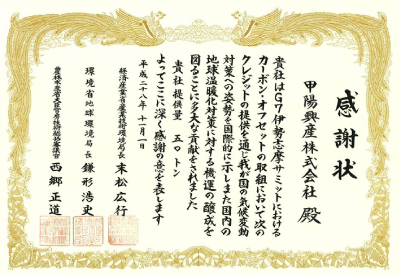 感謝状
甲陽興産株式会社 殿
貴社はG7伊勢志摩サミットにおける
カーボン・オフセットの取組において次の
クレジットの提供を通じ我が国の気候変動
対策への姿勢を国際的に示しまた国内の
地球温暖化対策に対する機運の醸成を
図ることに多大な貢献をされました
貴社提供量 五〇トン
よってここに深く感謝の意を表します
平成二十八年十一月一日
経済産業省産業技術環境局長 末松広行
環境省地球環境局長 鎌形浩史
西郷正道